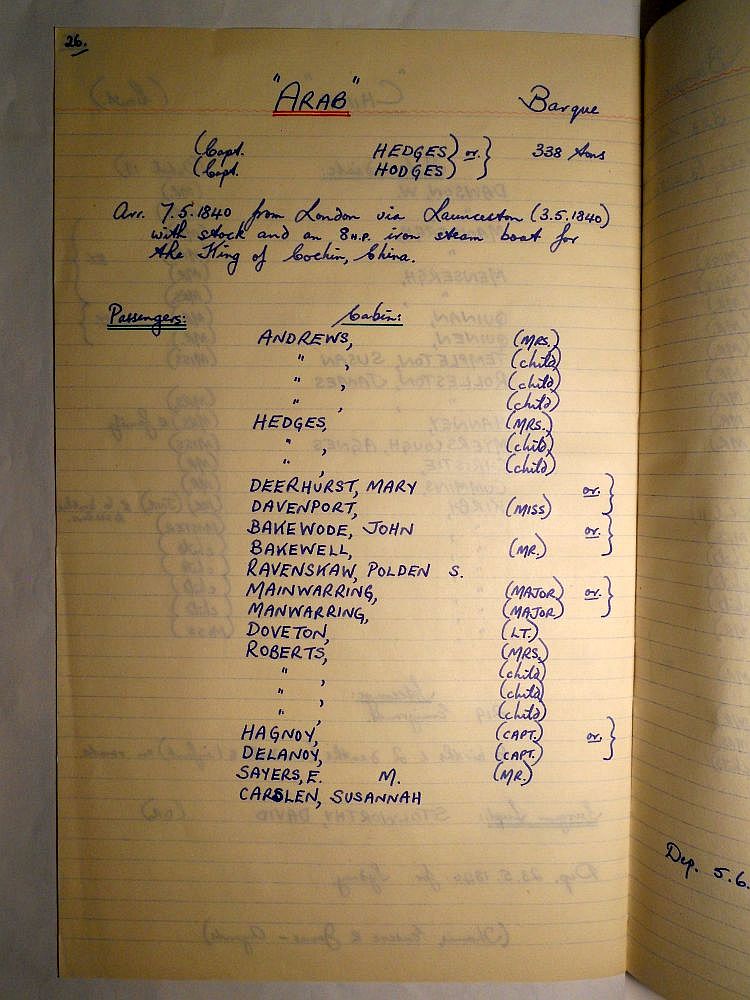 26.
"ARAB" Barque
(Capt. HEDGES) or. } 338 tons
(Capt. HODGES)
Arr. 7.5.1840 from London via Launceston (3.5.1840)
with stock and an 8 H.P. iron steam boat for
the King of Cochin, China.
Passengers: Cabin:
ANDREWS, (MRS.)
" , (child)
" , (child)
" , (child)
HEDGES, (MRS.)
" , (child)
" , (child)
DEERHURST, MARY or. }
DAVENPORT, (MISS)
BAKEWODE, JOHN or. }
BAKEWELL, (MR.)
RAVENSKAW, POLDEN S.
MAINWARRING, (MAJOR) or. }
MANWARRING, (MAJOR)
DOVETON, (LT.)
ROBERTS, (MRS.)
" , (child)
" , (child)
" , (child)
HAGNOY, (CAPT.) or. }
DELANOY, (CAPT.)
SAYERS, E. M. (MR.)
CARSLEN, SUSANNAH
Dep. 5.6.